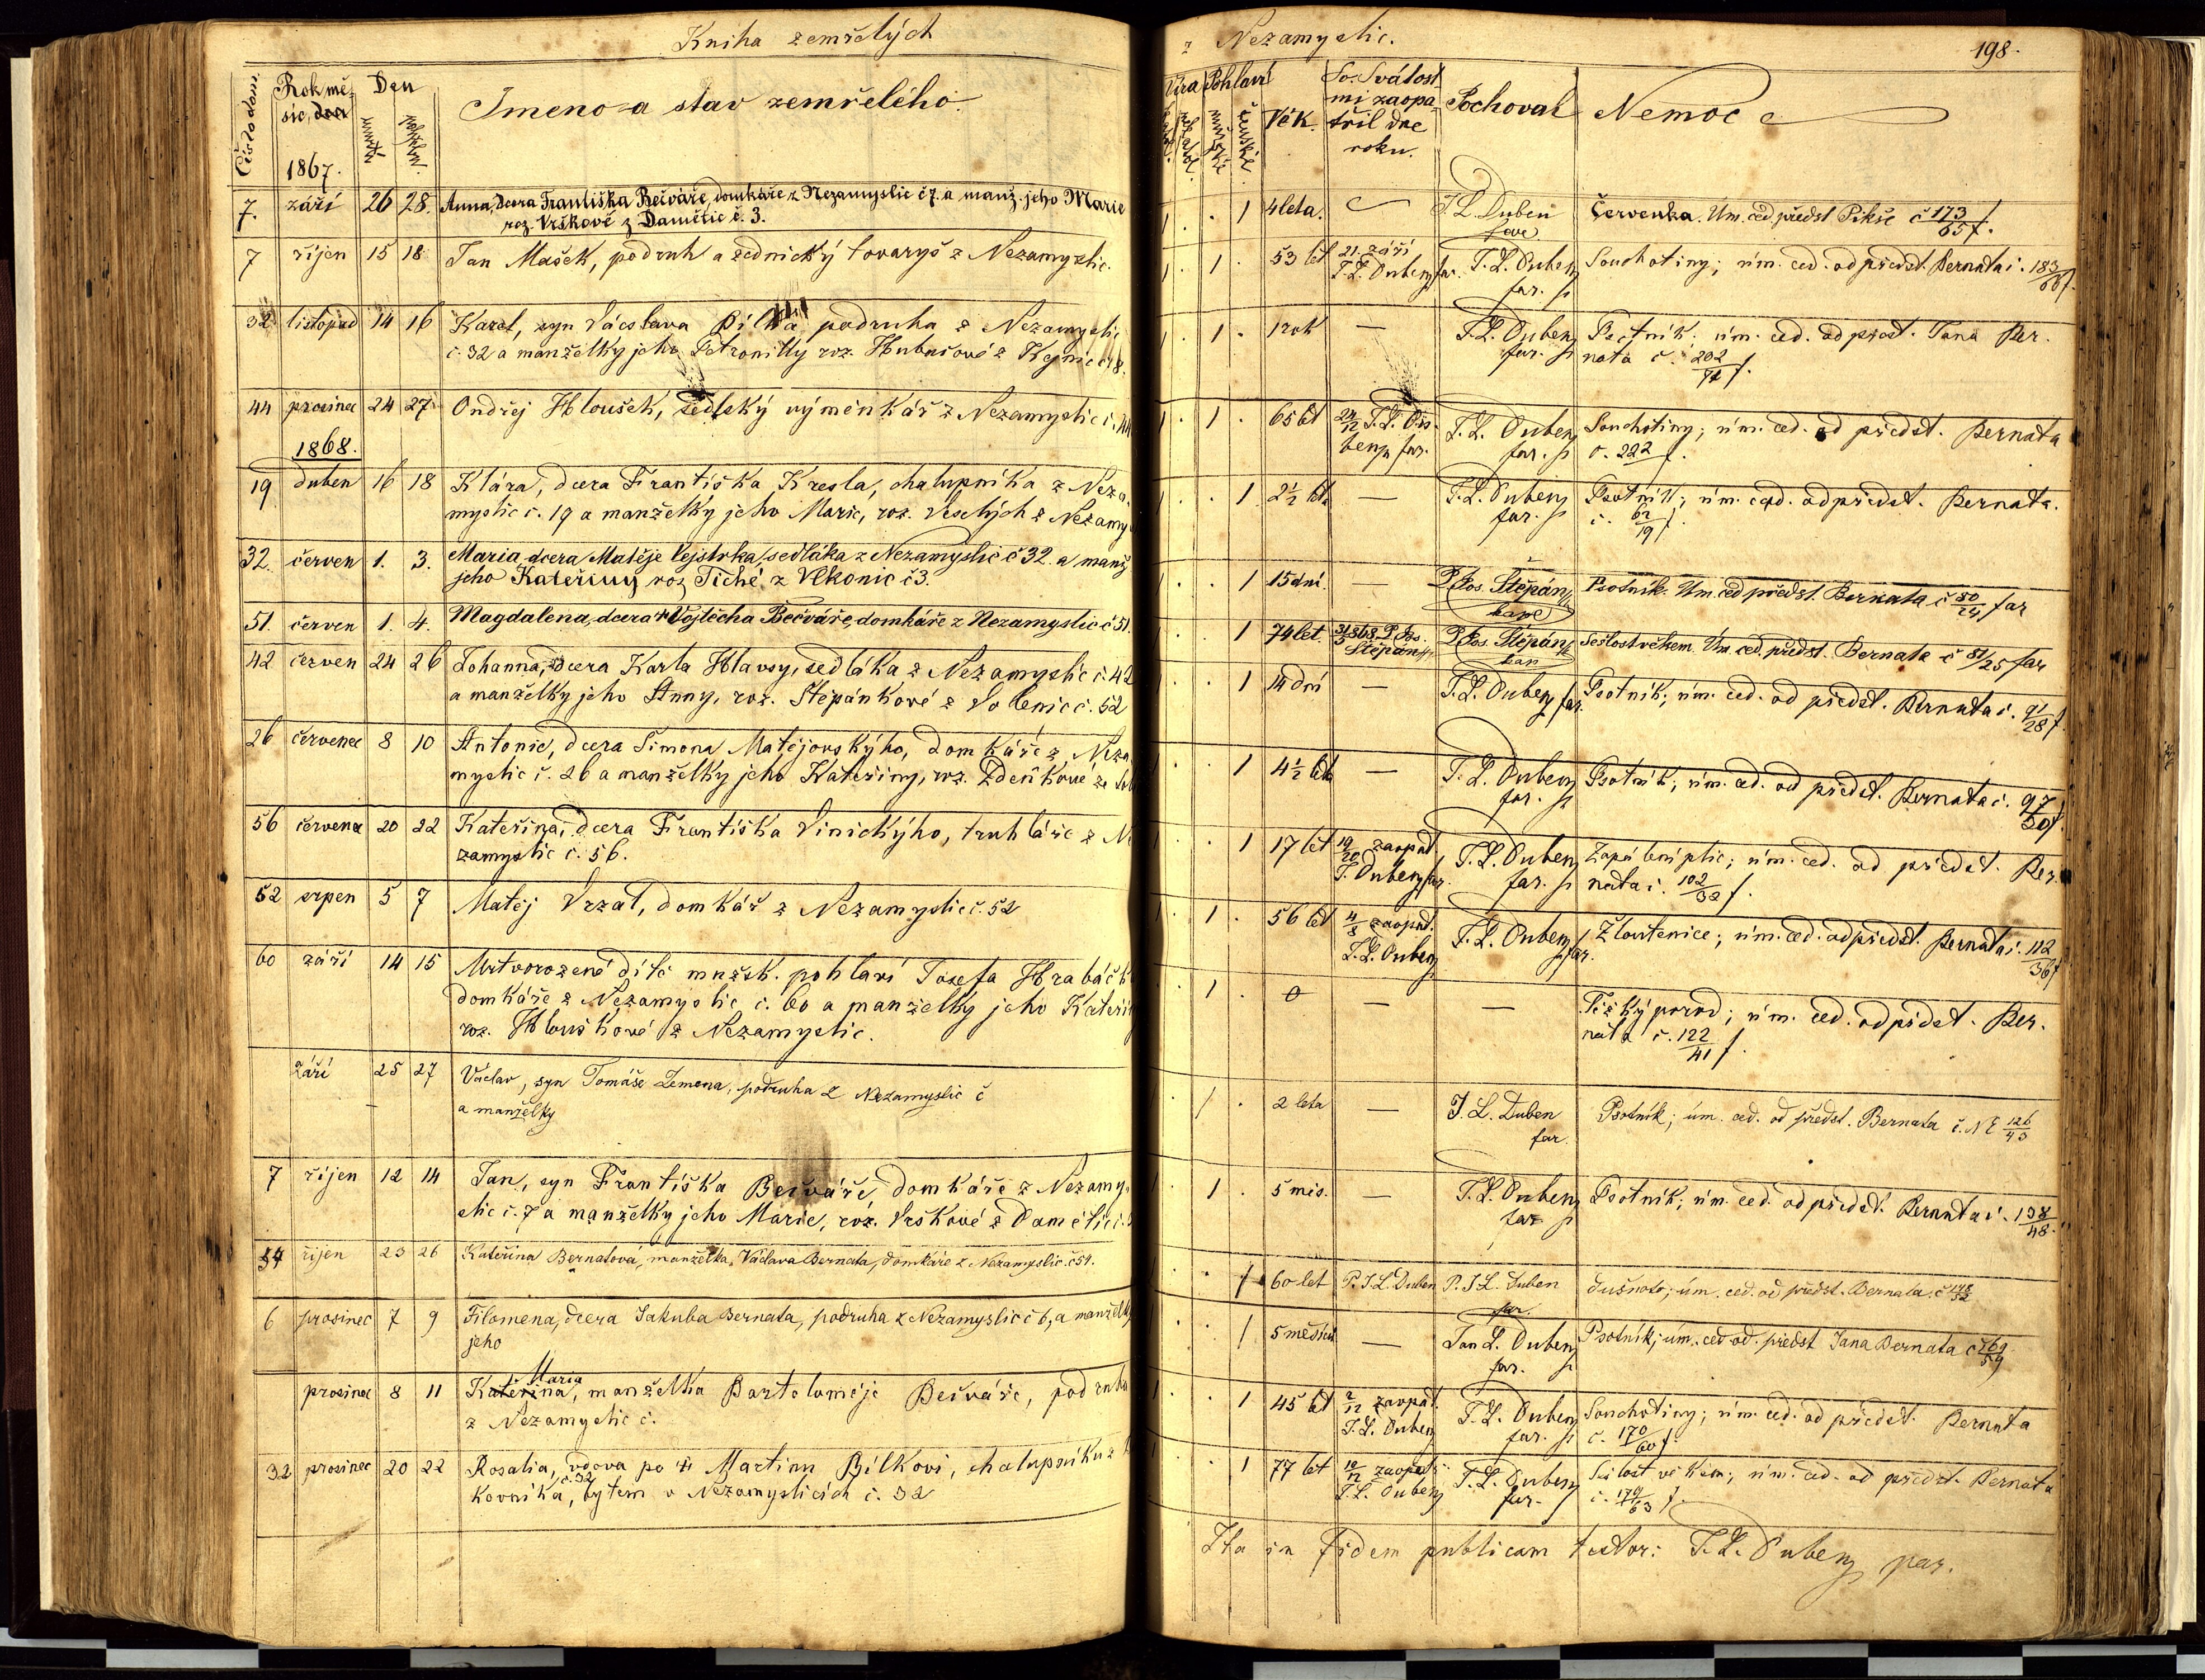 Kniha zemřelých
Číslo dom.
Rok mě-
síc, den
Den
úmrtí
pohřbu
Jmeno a stav zemřelého.
1867.
7. září 26 28. Anna, dcera Františka Bečváře, domkáře z Nezamyslic č 7. a manž. jeho Marie
roz. Vrškové z Damětic č. 3.
7 říjen 15 18 Jan Mašek, podruh a zednický tovaryš z Nezamyslic.
32 listopad 14 16 Karel, syn Václava Bílka podruha z Nezamyslic
č. 32 a manželky jeho Petronilly roz.
44 prosinec 24 27 Ondřej Hloušek, sedlský výměnkář z Nezamyslic č. 44
1868.
19 duben 16 18 Klára, dcera Františka Kresla, chalupníka z Neza-
myslic č. 19 a manželky jeho Marie, roz. Veselých z Nezamy
32. červen 1. 3. Maria dcera Matěje Vejstrka, sedláka z Nezamyslic č 32. a manž
jeho Kateřiny roz Tiché z Vlkonic č 3.
51. červen 1. 4. Magdalena, dcera Vojtěcha Bečváře, domkáře z Nezamyslic č 51.
42 červen 24 26 Johanna, dcera Karla Hlavsy, sedláka z Nezamyslic č. 42
a manželky jeho Anny, roz. Štěpánkové z Volenic č. 52
26 červenec 8 10 Antonie, dcera Šimona Matějovskýho, domkáře z Neza
myslic č. 26 a manželky jeho Kateřiny, roz. Zdeňkové ze
56 červenec 20 22 Kateřina, dcera Františka Vinickýho, truhláře z Ne
zamyslic č. 56.
52 srpen 5 7 Matěj Vrzal, domkář z Nezamyslic č. 52
60 září 14 15 Mrtvorozené dítě mužsk. pohlaví Josefa Hrabáčk
domkáře z Nezamyslic č. 60 a manželky jeho Kateři
roz. Hlouškové z Nezamyslic.
září 25 27 Václav, syn Tomáše Zemena, podruha z Nezamyslic č
a manželky
7 říjen 12 14 Jan, syn Františka Bečváře, domkáře z Nezamy-
slic č. 7 a manželky jeho Marie, roz. Vrškové z Damětic č.
54 říjen 23 26 Kateřina Bernatová, manželka Václava Bernata, domkáře z Nezamyslic. č 54.
6 prosinec 7 9 Filomena, dcera Jakuba Bernata, podruha z Nezamyslic č 6, a manželky
jeho
Maria
prosinec 8 11 Kateřina, manželka Bartoloměje Bečváře, podruha
z Nezamyslic č.
32 prosinec 20 22 Rosalia, vdova po Martinu Bílkovi, chalupníku z
č. 32
Kovníka, bytem v Nezamyslicích č. 32
z Nezamyslic.
198.
Víra Pohlaví
mužské
ženské
Věk.
Sv. Svátost-
mi zaopa-
třil dne
roku.
Pochoval
Nemoc
1 . . 1 4 leta. J. L. Duben Červenka. Úm. ced. předst Pikše č 173/65 f.
far
1 . 1 . 53 let 21. září J. L. Duben Souchotiny; úm. ced. od předst. Bernata č. 183/68 f.
J. L. Duben far. far.
1 . 1 . 1 rok — J. L. Duben Psotník; úm. ced. od předst. Jana Ber-
far. nata č. 202/74 f.
1 . 1 . 65 let 24/12 J. L. Du- J. L. Duben Souchotiny; úm. ced. od předst. Bernata
ben far. far. č. 222 f.
1 . . 1 2 1/2 let — J. L. Duben Psotník; úm. ced. od předst. Bernata.
far. č. 62/19 f.
1 . . 1 15 dní — P. Jos. Štěpán Psotník. Úm. ced předst. Bernata č 80/24 far
kapl
1 . . 1 74 let. 31/5 868 P. Jos. P. Jos. Štěpán Sešlost věkem. Úm. ced. předst. Bernata č 81/25 far
Štěpán kap
1 . . 1 14 dní — J. L. Duben far. Psotník; úm. ced. od předst. Bernata č. 91/28 f.
1 . . 1 4 1/2 let — J. L. Duben Psotník; úm. ced. od předst. Bernata č. 97/30 f.
far.
1 . . 1 17 let 19/20 zaopat. J. L. Duben Zapálení plic; úm. ced. od předst. Ber-
J. Duben far. far. nata č. 102/32 f.
1 . 1 . 56 let 4/8 zaopat. J. L. Duben far. Žloutenice; úm. ced. od předst. Bernata č. 112/36 f
J. L. Duben
. 1 . 0 — — Těžký porod; úm. ced. od předst. Ber-
nata č. 122/41 f.
1 . 1 . 2 leta — J. L. Duben Psotník; úm. ced. od předst. Bernata č. NE 126/43
far.
1 . 1 . 5 měs. — J. L. Duben Psotník; úm. ced. od předst. Bernata č. 138/48.
far
1 . . 1 60 let P. J. L. Duben P. J. L. Duben dušnota; úm. ced. od předst. Bernata. č 148/52
far.
1 . . 1 5 měsíců — Jan L. Duben Psotník; úm. ced od. předst Jana Bernata č 169/59
far.
1 . . 1 45 let 2/12 zaopat. J. L. Duben Souchotiny; úm. ced. od předst. Bernata
J. L. Duben far. č. 170/60 f.
1 . . 1 77 let 10/12 zaopatř. J. L. Duben Sešlost věkem; úm. ced. od předst. Bernata
J. L. Duben far. č. 179/63 f.
Ita in fidem publicam testor: J. L. Duben par.